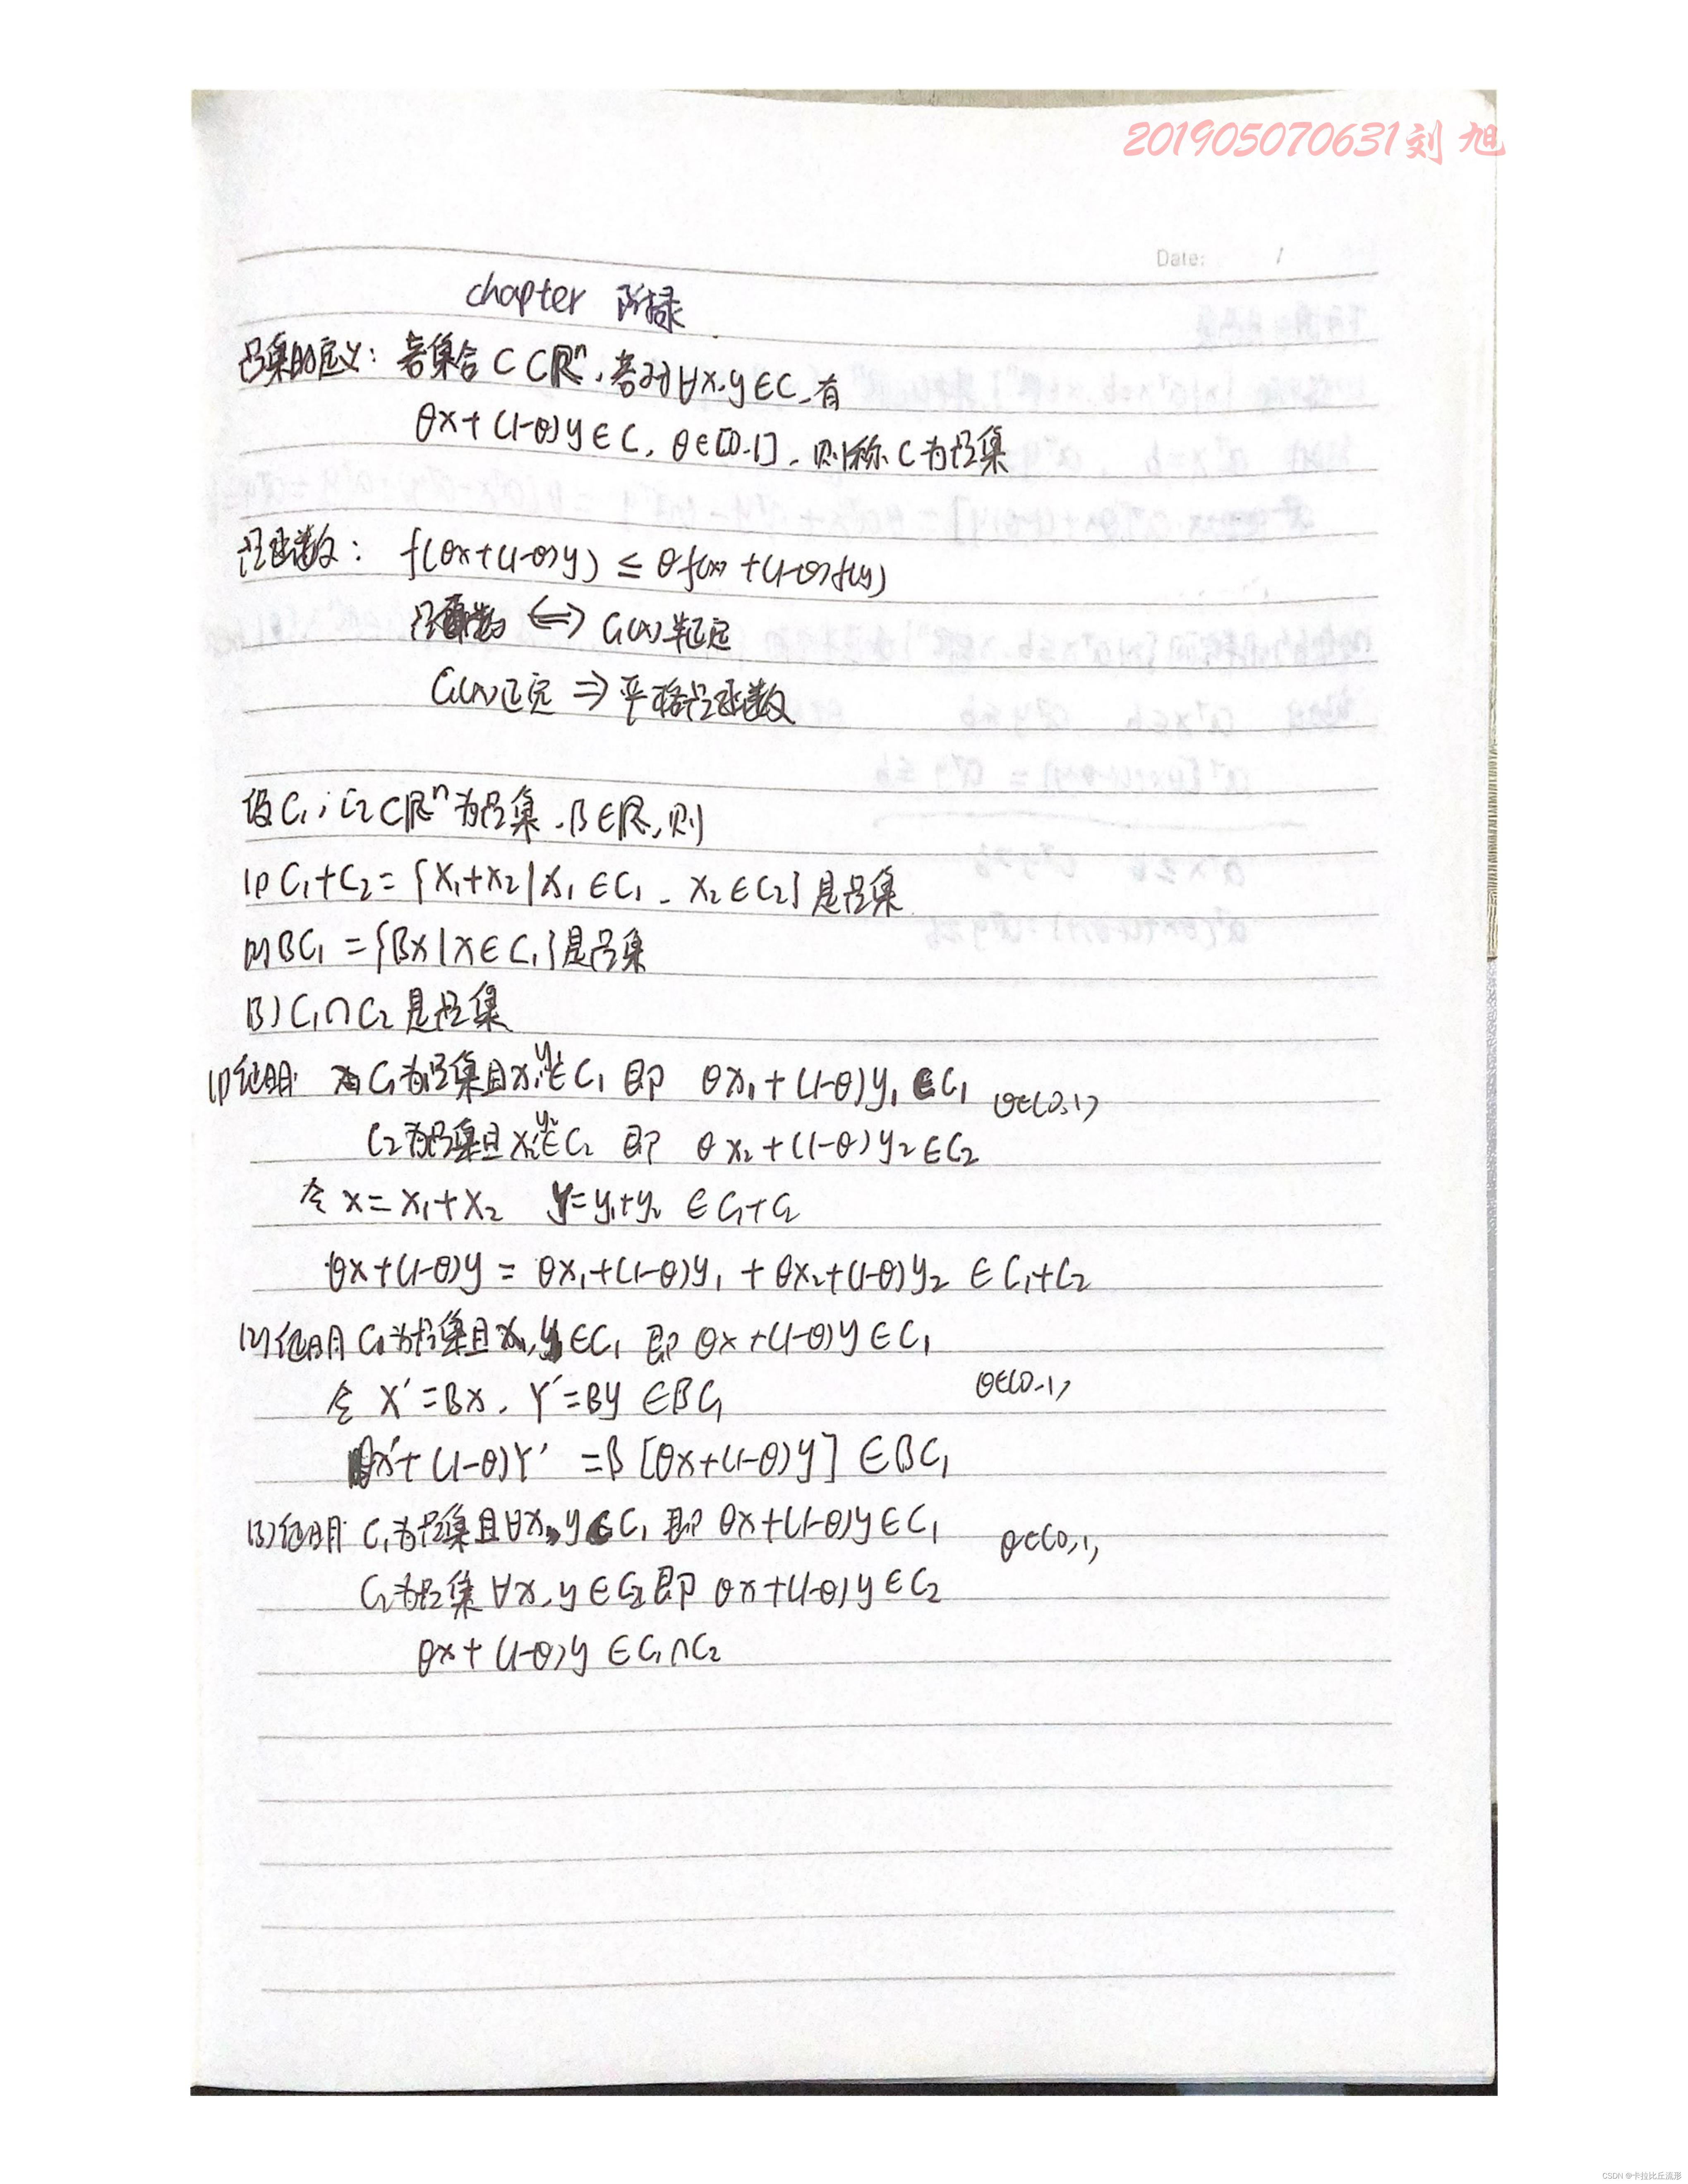 201905070631刘旭
Date: /
chapter 附录
凸集的定义：若集合 C⊂ℝⁿ，若对∀x,y∈C，有
θx+(1-θ)y∈C，θ∈[0,1]，则称C为凸集
凸函数： f(θx+(1-θ)y) ≤ θf(x)+(1-θ)f(y)
凸函数 ⟺ G(x)半正定
G(x)正定 ⇒ 严格凸函数
设C₁,C₂⊂ℝⁿ为凸集，β∈ℝ，则
(1) C₁+C₂={x₁+x₂|x₁∈C₁，x₂∈C₂}是凸集
(2) βC₁={βx|x∈C₁}是凸集
(3) C₁∩C₂是凸集
(1)证明 C₁为凸集且x₁,y₁∈C₁ 即 θx₁+(1-θ)y₁∈C₁ θ∈(0,1)
C₂为凸集且x₂,y₂∈C₂ 即 θx₂+(1-θ)y₂∈C₂
令 x=x₁+x₂ y=y₁+y₂ ∈C₁+C₂
θx+(1-θ)y = θx₁+(1-θ)y₁+θx₂+(1-θ)y₂ ∈C₁+C₂
(2)证明 C₁为凸集且x,y∈C₁ 即 θx+(1-θ)y∈C₁
θ∈(0,1)
令 X′=βx，Y′=βy ∈βC₁
θX′+(1-θ)Y′ =β[θx+(1-θ)y]∈βC₁
(3)证明 C₁为凸集且∀x,y∈C₁ 即 θx+(1-θ)y∈C₁ θ∈(0,1)
C₂为凸集∀x,y∈C₂即 θx+(1-θ)y∈C₂
θx+(1-θ)y ∈C₁∩C₂
CSDN @卡拉比丘流形